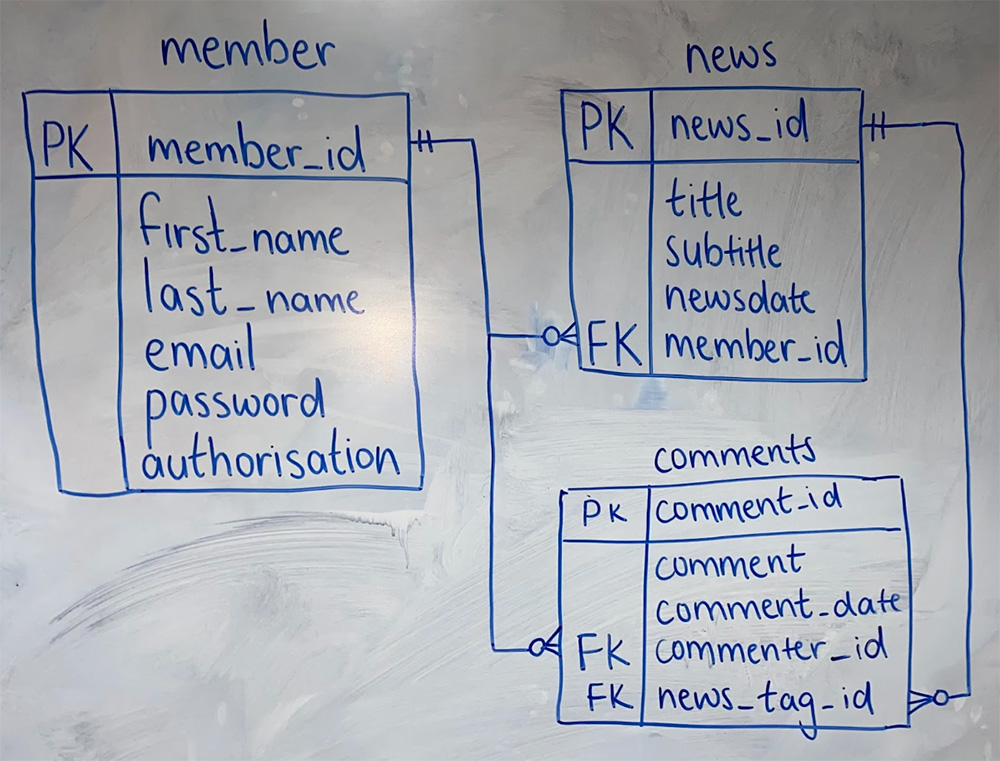 member
PK member_id
first_name
last_name
email
password
authorisation
news
PK news_id
title
subtitle
newsdate
FK member_id
comments
PK comment_id
comment
comment_date
FK commenter_id
FK news_tag_id